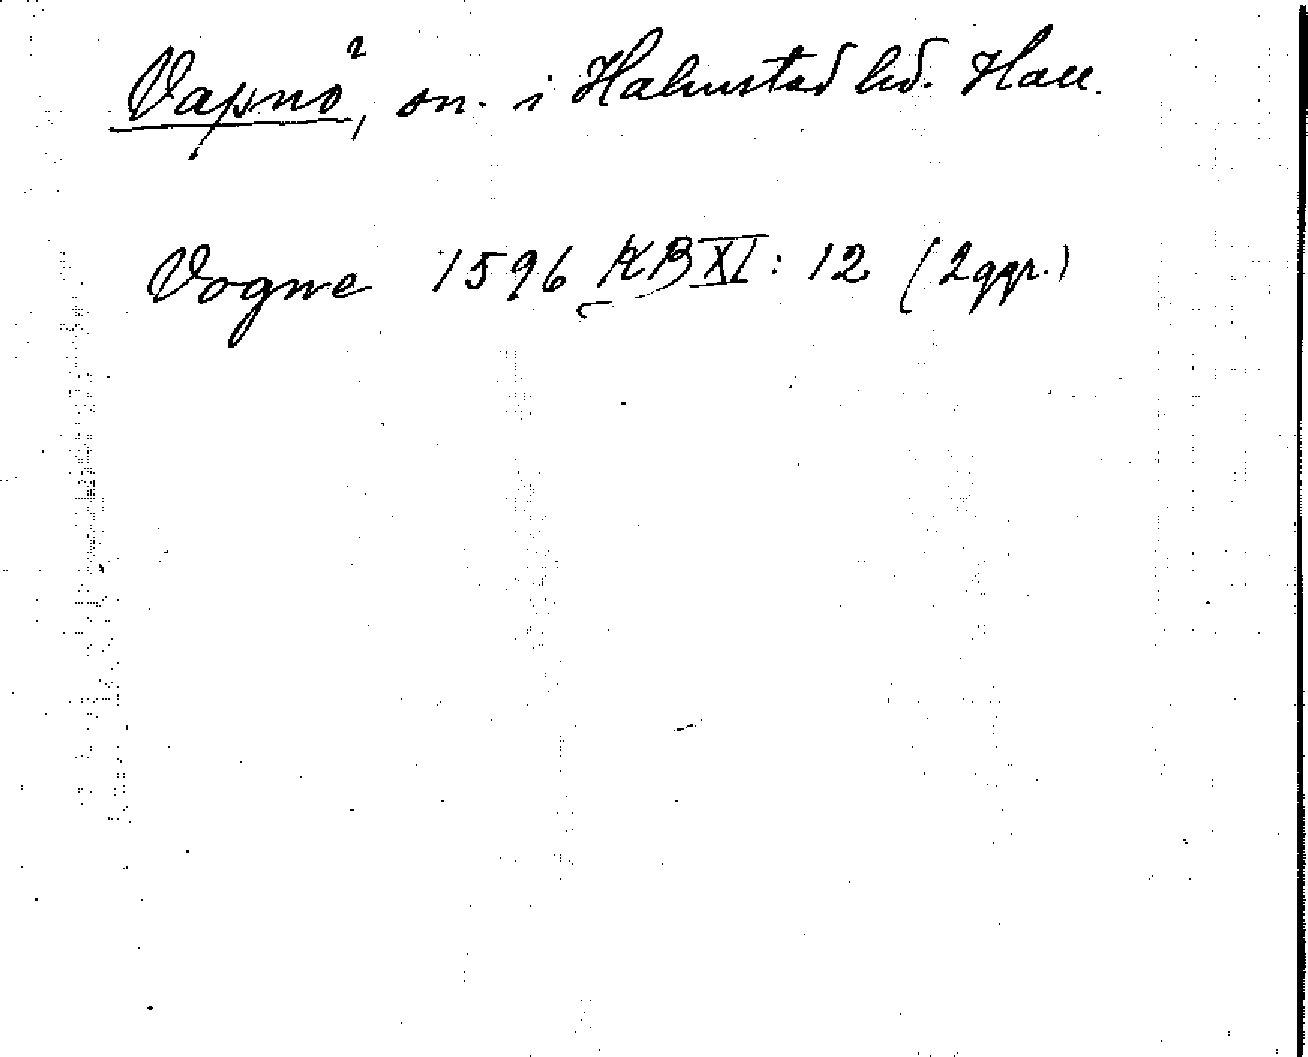 Vapnö, sn. i Halmstad hd. Hall.
Vogne 1596 KB XI: 12 (2ggr.)